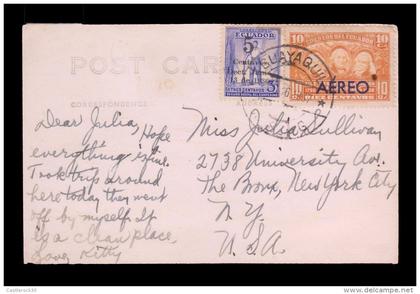 POST CARD
CORRESPONDENCE
ECUADOR
5
TRES CENTAVOS
3
10
CORREOS DEL ECUADOR
10
AEREO
DIEZ CENTAVOS
GUAYAQUIL
Dear Julia, Hope
everything is fine.
Took trip around
here today they went
off by myself. It
is a clean place,
Love, Kitty
Miss Julia Sullivan
2738 University Av.
The Bronx, New York City
N.Y.
U.S.A.